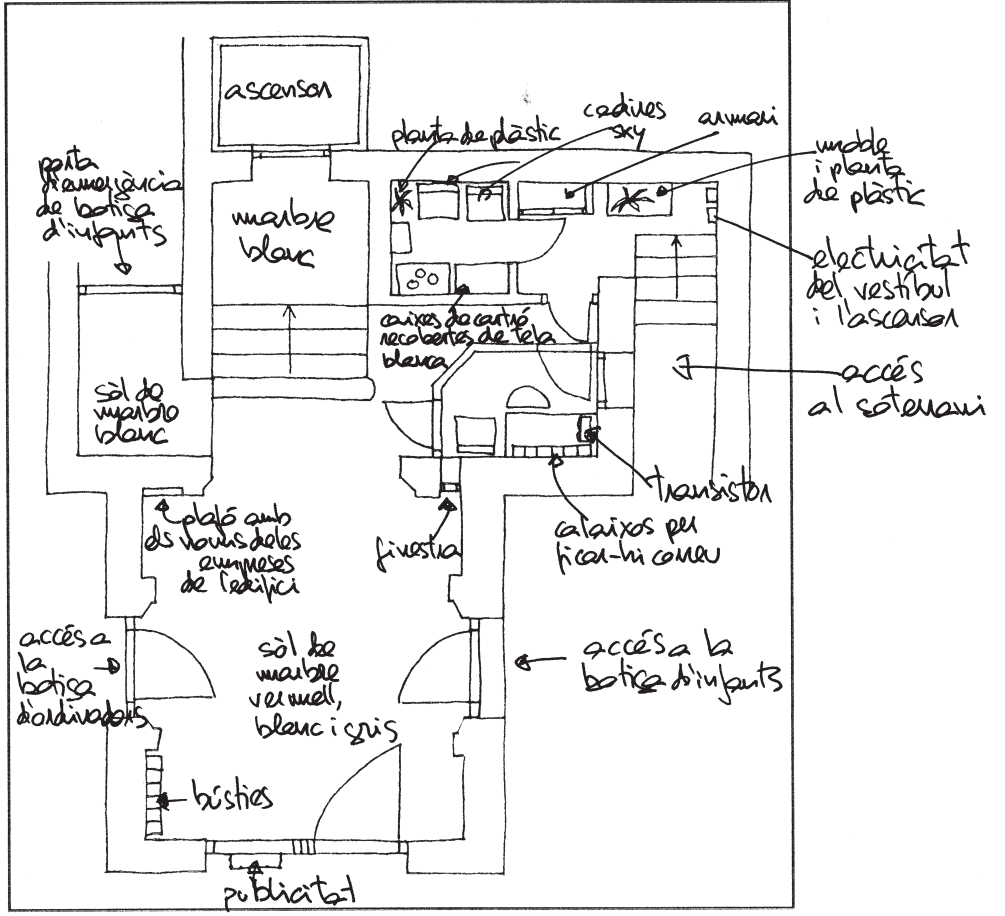 ascensor
planta de plàstic
cadires
sky
armari
moble
i planta
de plàstic
porta
d'emergència
de botiga
d'infants
marbre
blanc
electricitat
del vestíbul
i l'ascensor
caixes de cartró
recobertes de tela
blanca
accés
al soterrani
sòl de
marbre
blanc
transistor
plafó amb
els noms de les
empreses
de l'edifici
finestra
calaixos per
ficar-hi correu
accés a
la
botiga
d'ordinadors
sòl de
marbre
vermell,
blanc i gris
accés a la
botiga d'infants
bústies
publicitat